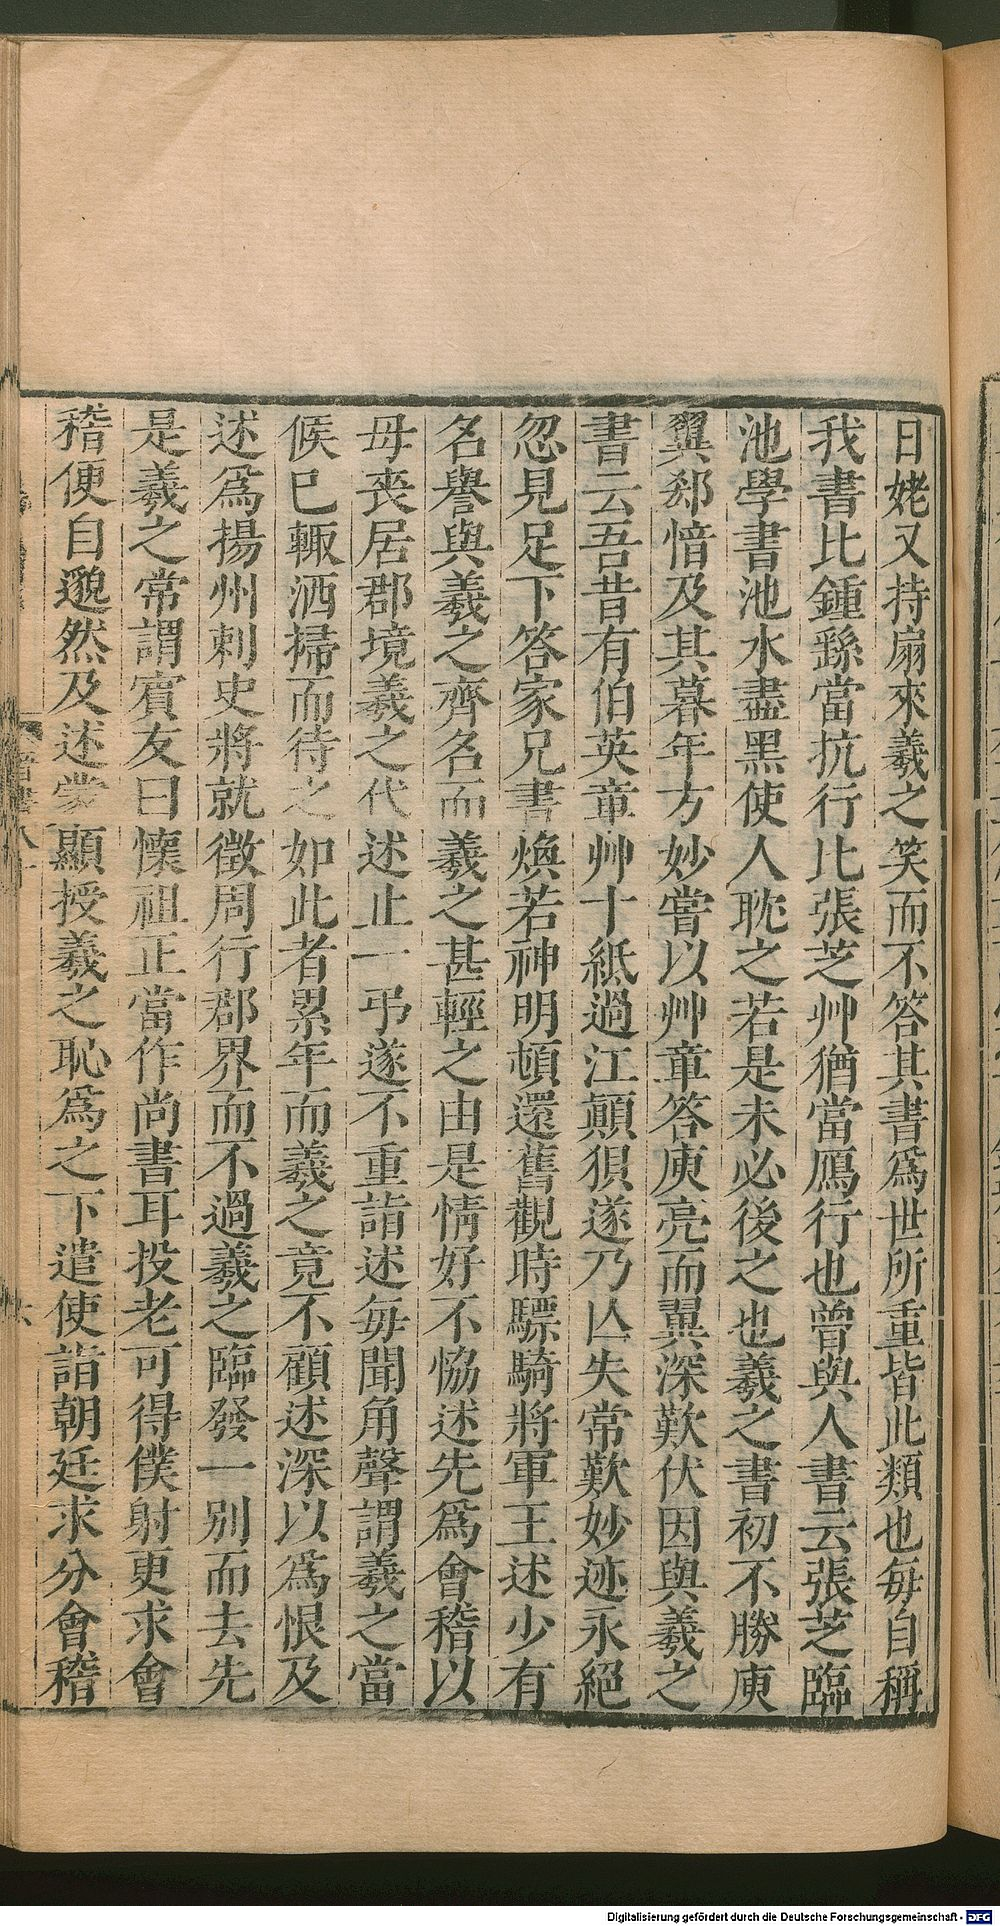 日姥又持扇來羲之笑而不答其書爲世所重皆此類也每自稱
我書比鍾繇當抗行比張芝艸猶當鴈行也曾與人書云張芝臨
池學書池水盡黑使人耽之若是未必後之也羲之書初不勝庾
翼郄愔及其暮年方妙嘗以艸章答庾亮而翼深歎伏因與羲之
書云吾昔有伯英章艸十紙過江顚狽遂乃亾失常歎妙迹永絕
忽見足下答家兄書煥若神明頓還舊觀時驃騎將軍王述少有
名譽與羲之齊名而羲之甚輕之由是情好不協述先爲會稽以
母喪居郡境羲之代述止一弔遂不重詣述每聞角聲謂羲之當
候已輙洒掃而待之如此者累年而羲之竟不顧述深以爲恨及
述爲揚州刺史將就徵周行郡界而不過羲之臨發一別而去先
是羲之常謂賓友曰懷祖正當作尚書耳投老可得僕射更求會
稽便自邈然及述蒙顯授羲之恥爲之下遣使詣朝廷求分會稽
Digitalisierung gefördert durch die Deutsche Forschungsgemeinschaft - DFG